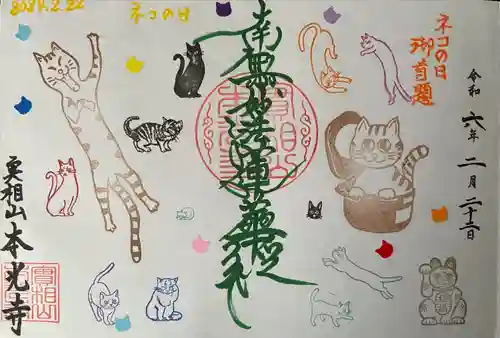 2024.2.22
ネコの日
ネコの日
御首題
令和六年二月二十二日
南無妙法蓮華経
實相山本光寺
實相山